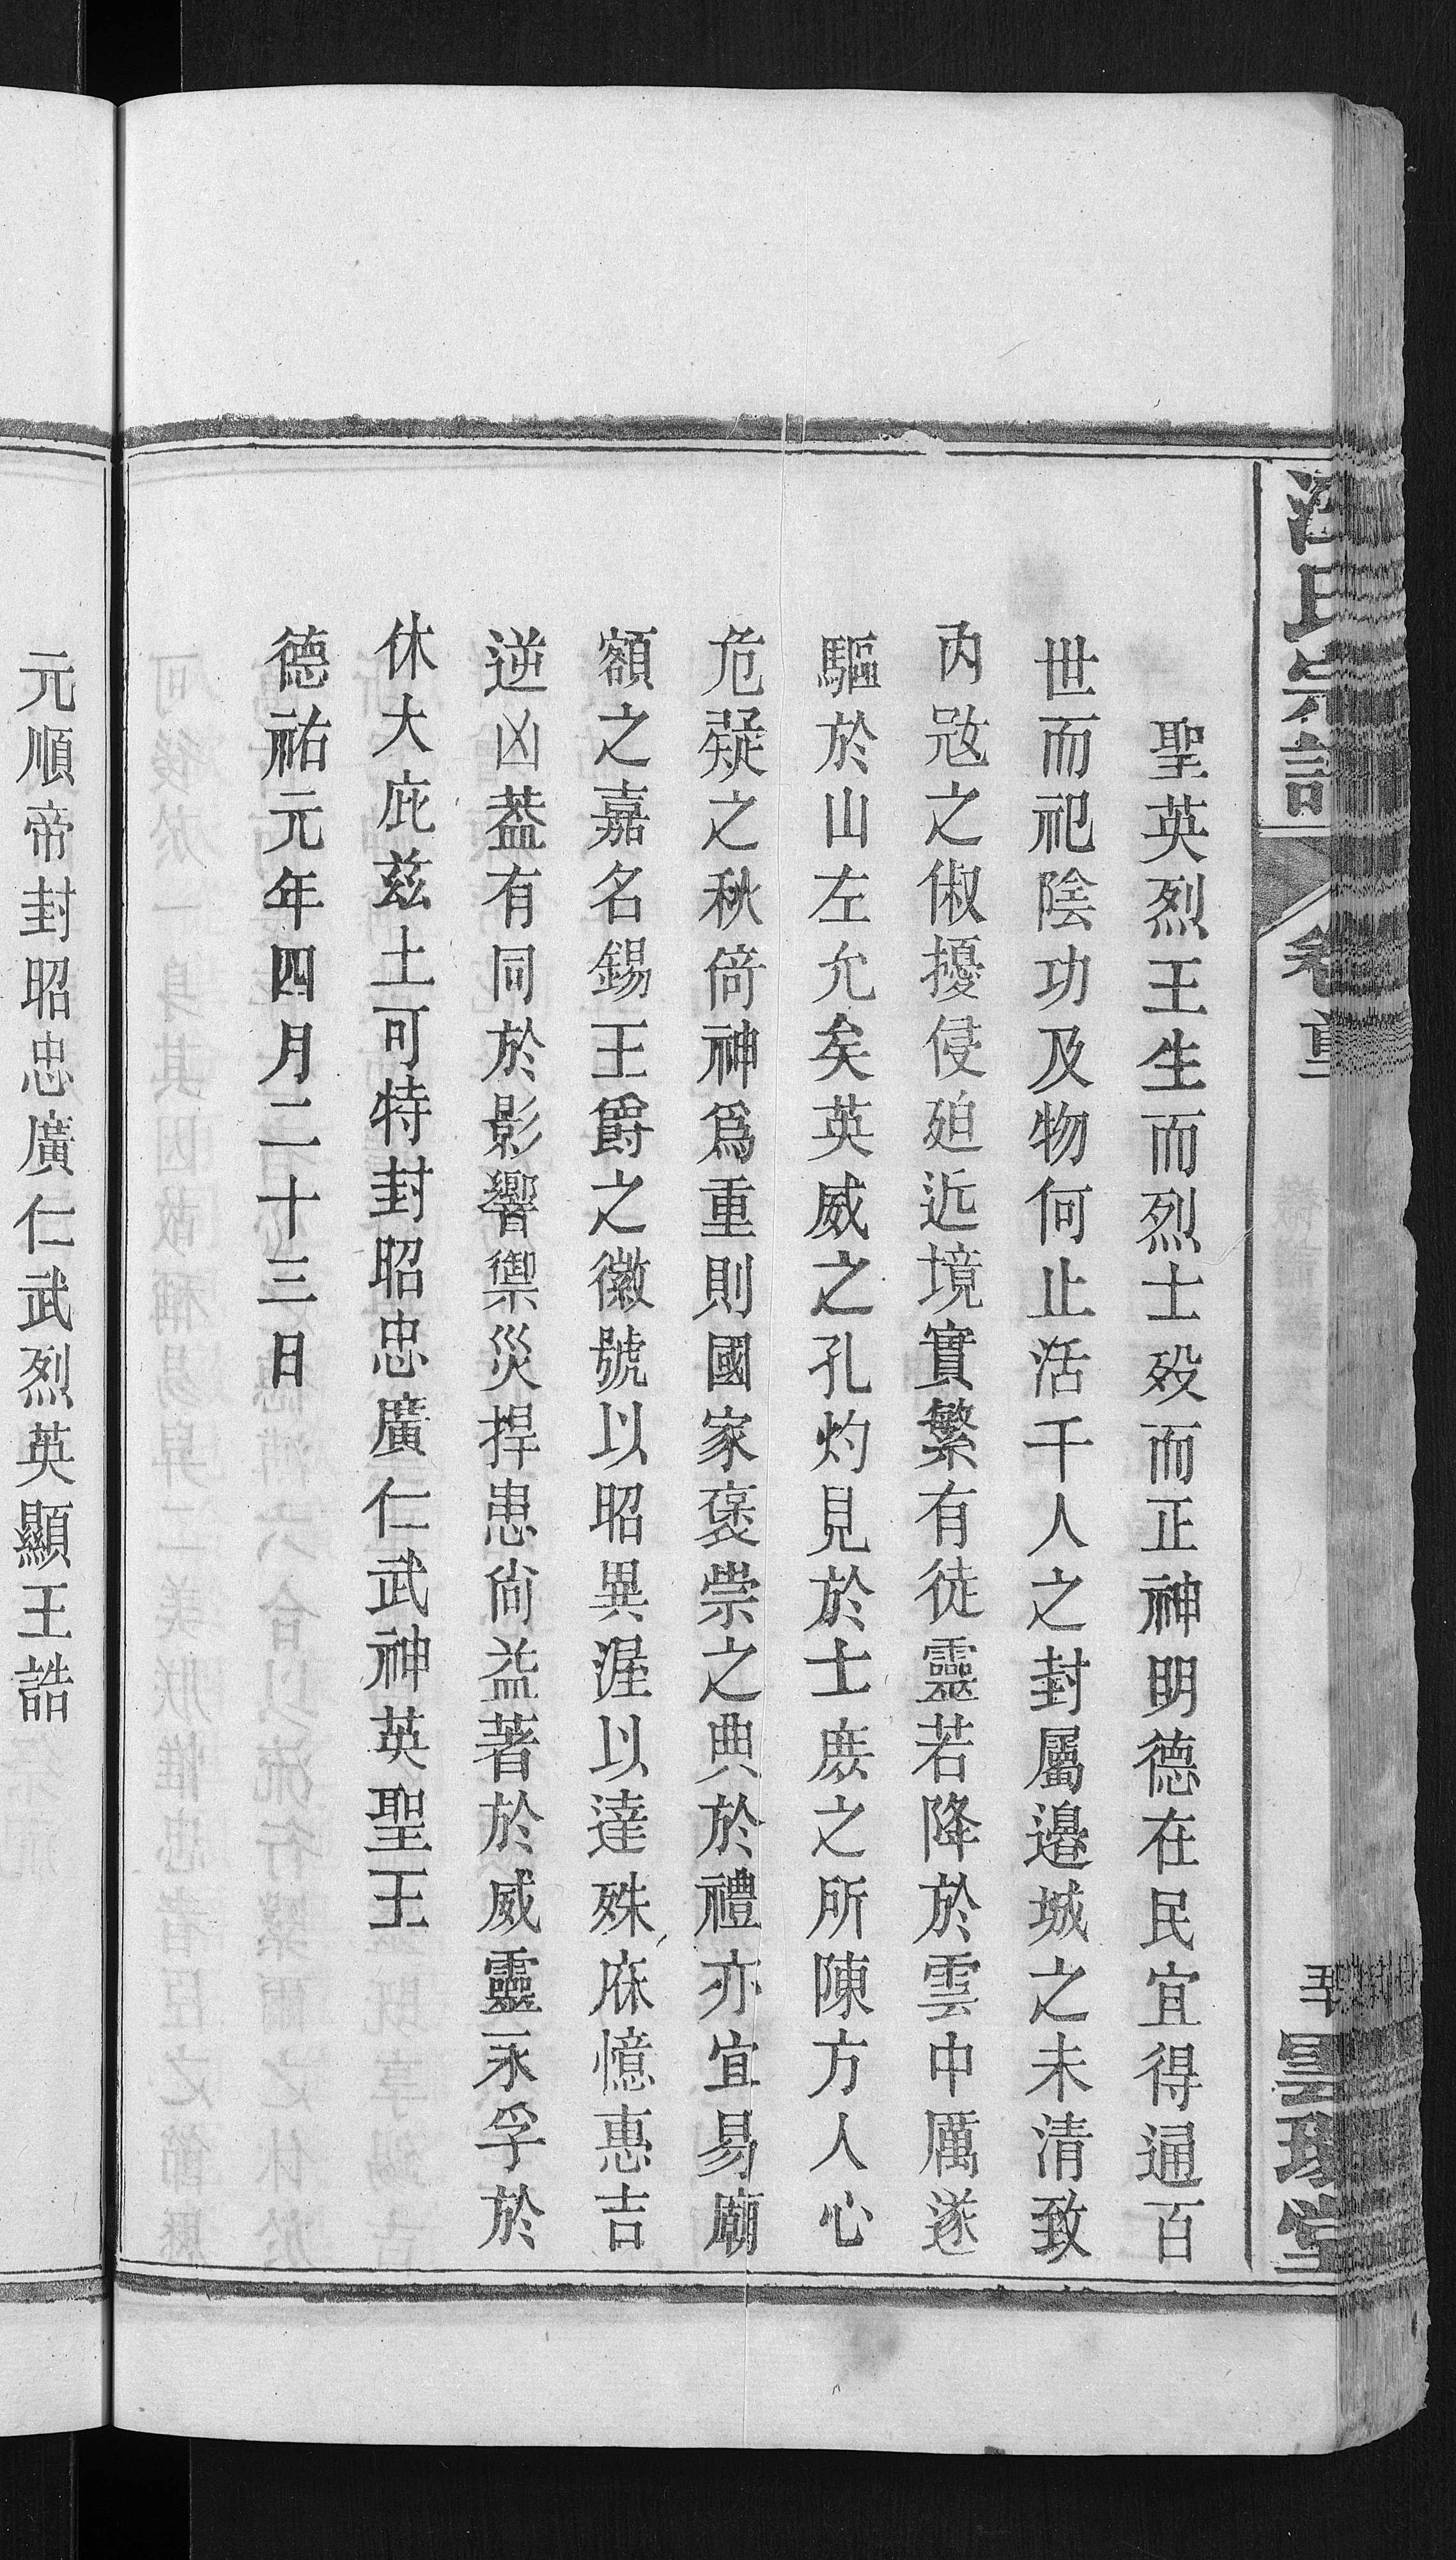 汪氏宗譜
卷首
雲環堂
聖英烈王生而烈士歿而正神明德在民宜得通百
世而祀陰功及物何止活千人之封屬邊城之未清致
內寇之俶擾侵廹近境實繁有徒靈若降於雲中厲遂
驅於山左允矣英威之孔灼見於士庻之所陳方人心
危疑之秋倚神爲重則國家褒崇之典於禮亦宜昜廟
額之嘉名錫王爵之徽號以昭異渥以達殊庥憶惠吉
逆凶葢有同於影響禦災捍患尙益著於威靈永孚於
休大庇茲土可特封昭忠廣仁武神英聖王
德祐元年四月二十三日
元順帝封昭忠廣仁武烈英顯王誥